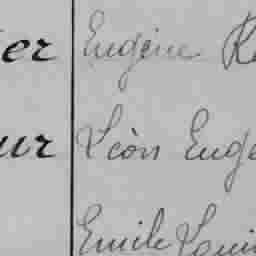 er Eugène
ur Léon Eug
Emile Louis